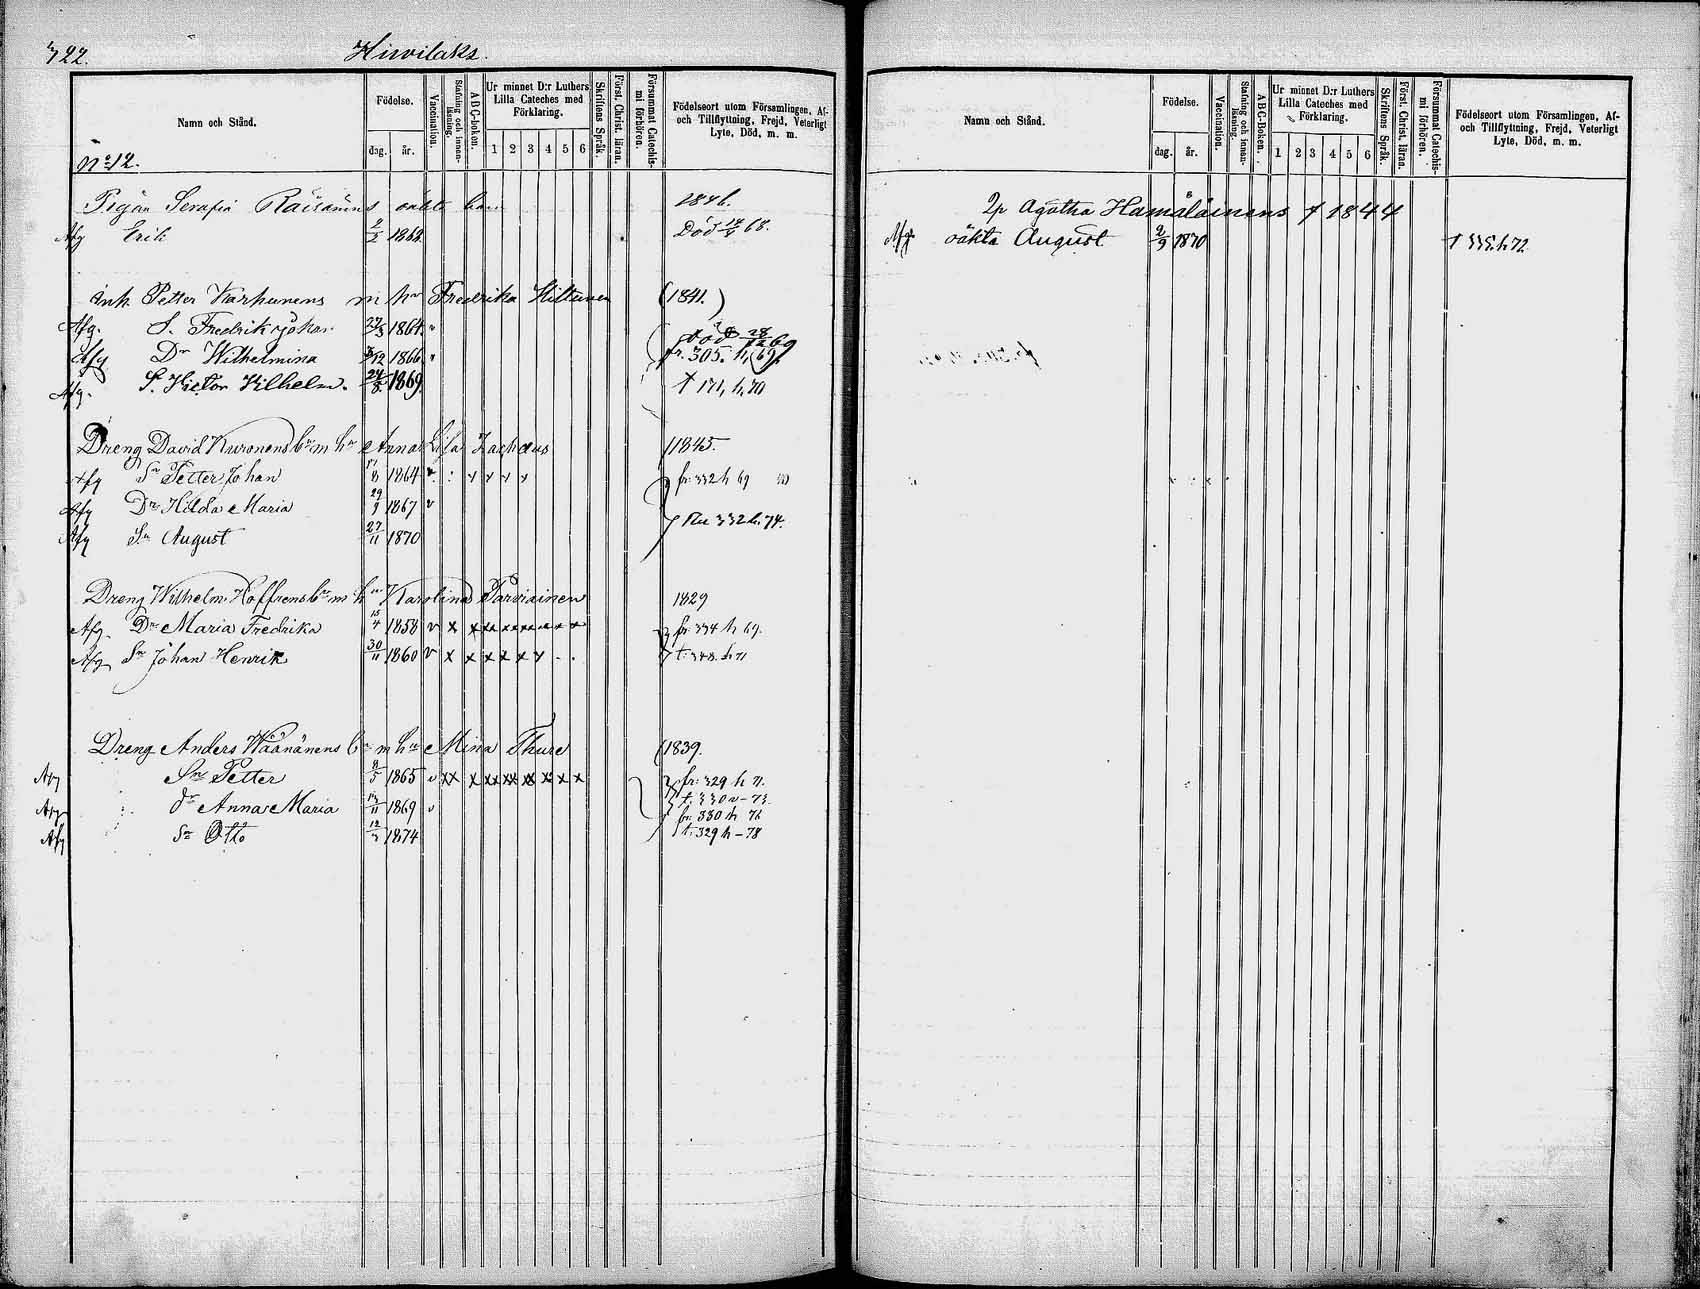 322.
Hirvilaks.
Namn och Stånd.
Födelse.
dag.
år.
Vaccination.
Stafning och innan-läsning.
A B C-boken.
Ur minnet D:r Luthers Lilla Cateches med Förklaring.
1 2 3 4 5 6
Skriftens Språk.
Först. Christ. läran.
Försummat Catechis-mi förhören.
Födelseort utom Församlingen, Af- och Tillflyttning, Frejd, Veterligt Lyte, Död, m. m.
No 12.
Pigan Serafia Räisänens oäkta barn 1846.
Afg Erik 2/2 1868 Död 68.
Inh. Petter Karhunens m hu Fredrika Hiltunen (1841.)
Afg. S. Fredrik Johan 27/3 1864 Död 28/12 69
Afg Dr Wilhelmina 3/12 1866 fr. 305. h, (69).
Afg. S. Victor Vilhelm. 24/8 1869. † 171, h, 70
Dreng David Kuronens bn m hu Anna Lisa Zachæus 1845.
Afg Sn Petter Johan 17/8 1864 v fr. 332 h 69
Afg Dr Hilda Maria 29/9 1867 v
Afg Sn August 27/11 1870 332 h. 74.
Dreng Wilhelm Hoffrens bn m hu Karolina Parviainen 1829
Afg. Dr Maria Fredrika 15/4 1858 v x x x x x x x x fr. 334 h 69.
Afg Sn Johan Henrik 30/11 1860 v x x x x x v . . t. 348. h 71
Dreng Anders Wäänänens bn m hu Mina Thure (1839.
Afg Sn Petter 9/5 1865 v xx x xx xx xx x x x fr. 329 h 71.
t. 330 - 73.
Afg dr Anna Maria 13/11 1869 v fr. 330 h 76
Afg Sn Otto 12/3 1874 t. 329 h - 78
Namn och Stånd.
Födelse.
dag.
år.
Vaccination.
Stafning och innan-läsning.
A B C-boken.
Ur minnet D:r Luthers Lilla Cateches med Förklaring.
1 2 3 4 5 6
Skriftens Språk.
Först. Christ. läran.
Försummat Catechis-mi förhören.
Födelseort utom Församlingen, Af- och Tillflyttning, Frejd, Veterligt Lyte, Död, m. m.
Agatha Hämäläinens f 1844
Afg oäkta August 2/9 1870 † 335. h 72.